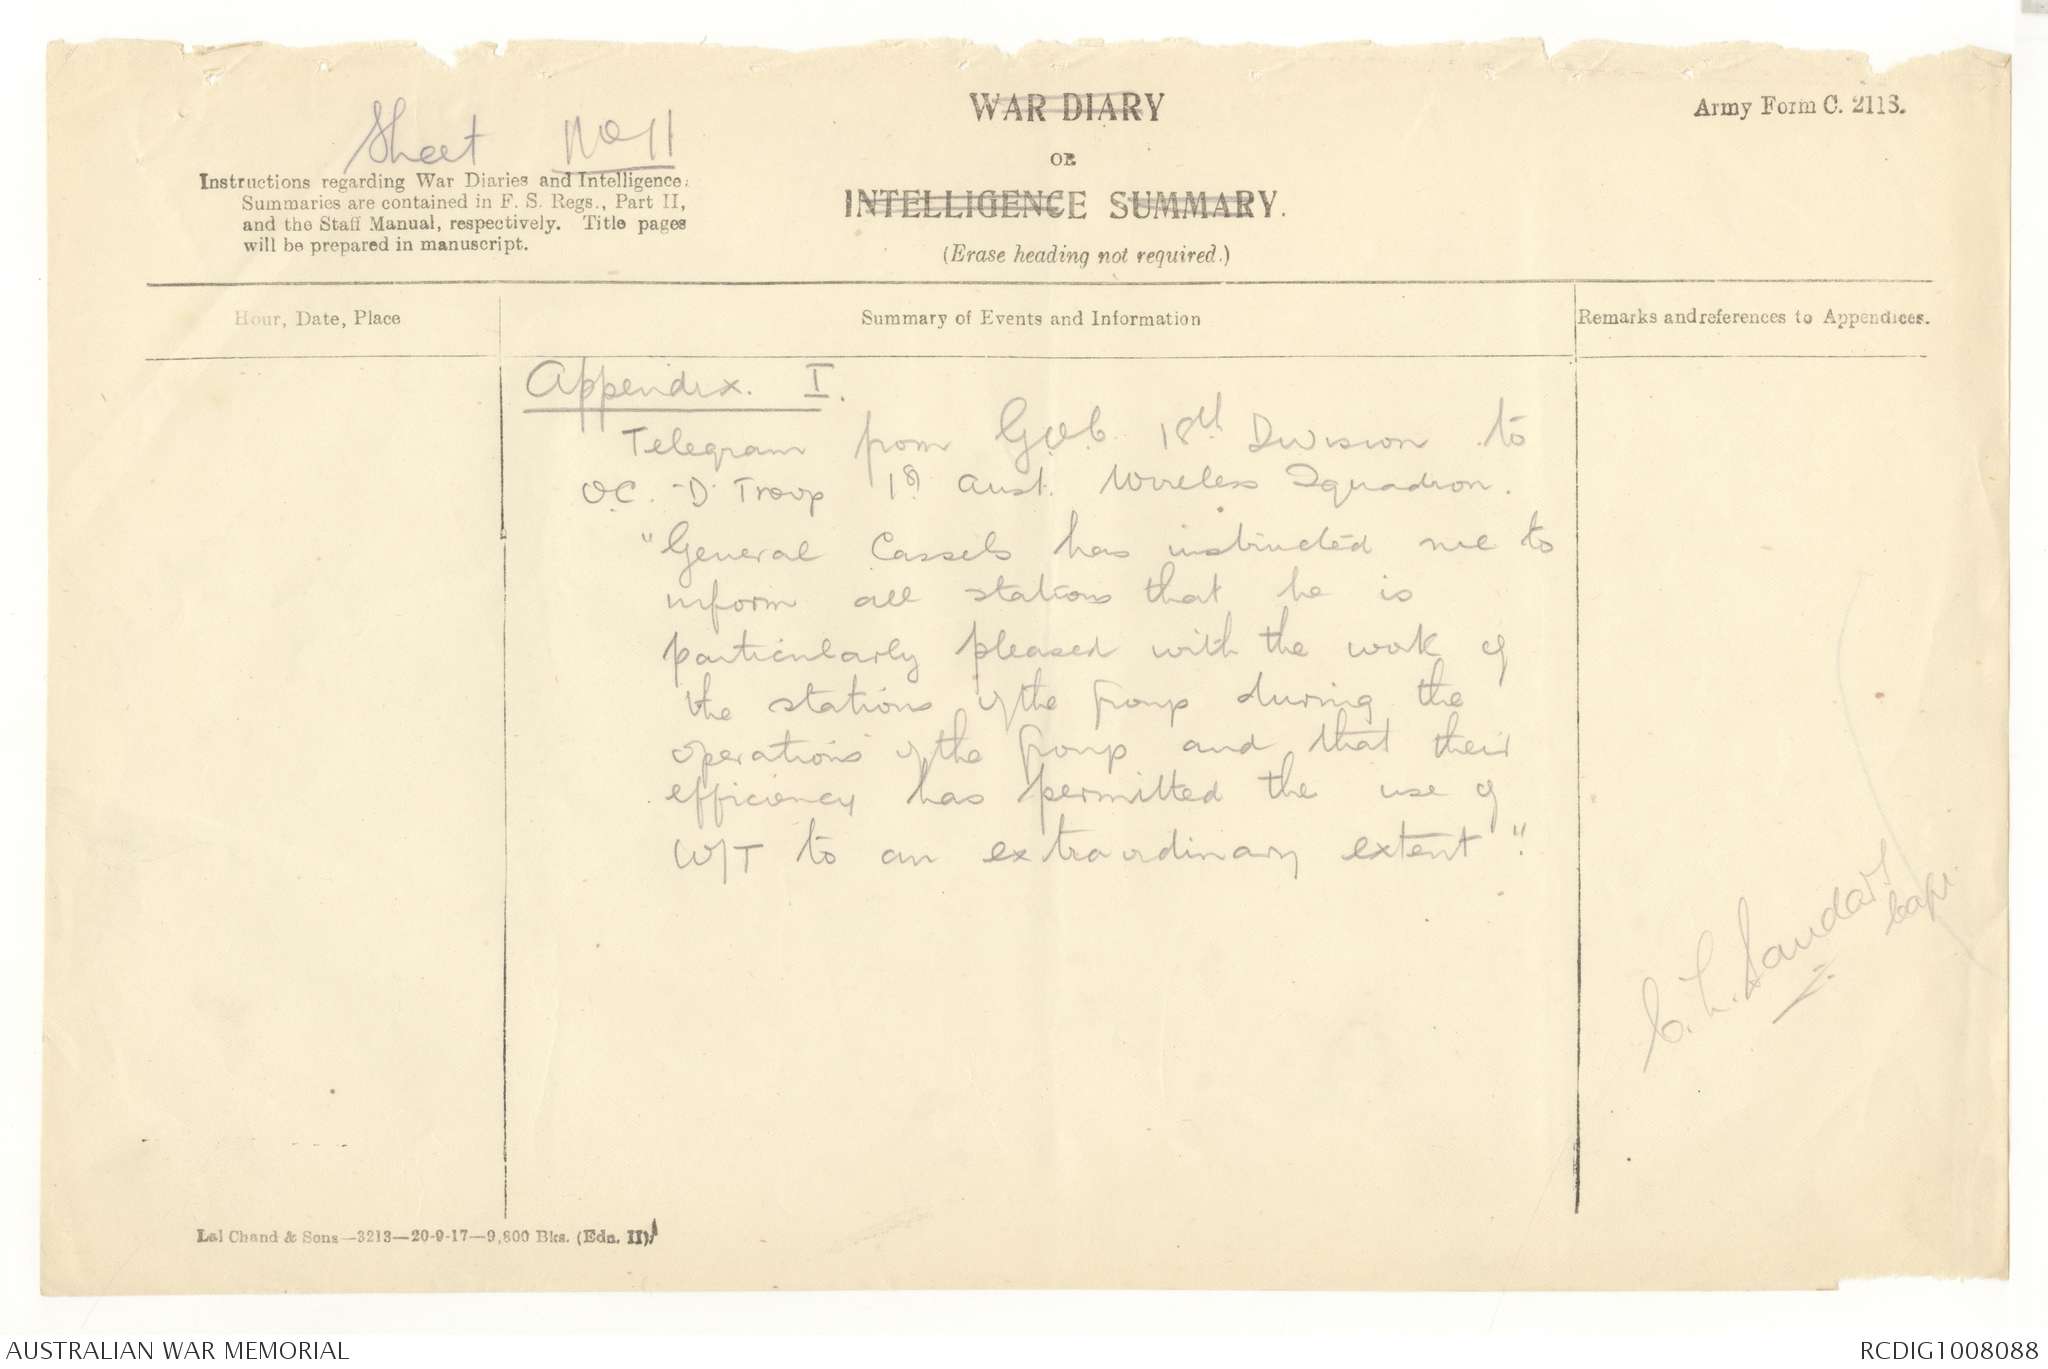 Sheet No 11
Instructions regarding War Diaries and Intelligence
Summaries are contained in F. S. Regs., Part II,
and the Staff Manual, respectively. Title pages
will be prepared in manuscript.
WAR DIARY
OR
INTELLIGENCE SUMMARY.
(Erase heading not required.)
Army Form C. 2118.
Hour, Date, Place
Summary of Events and Information
Remarks and references to Appendices.
Appendix. I.
Telegram from G.O.C. 18th Division to
O.C. "D" Troop 1st Aust. Wireless Squadron.
"General Cassels has instructed me to
inform all stations that he is
particularly pleased with the work of
the stations of the Group during the
operations of the Group and that their
efficiency has permitted the use of
W/T to an extraordinary extent".
C. L. Sandars
Capt.
Lal Chand & Sons—3213—20-9-17—9,800 Bks. (Edn. II)
AUSTRALIAN WAR MEMORIAL
RCDIG1008088